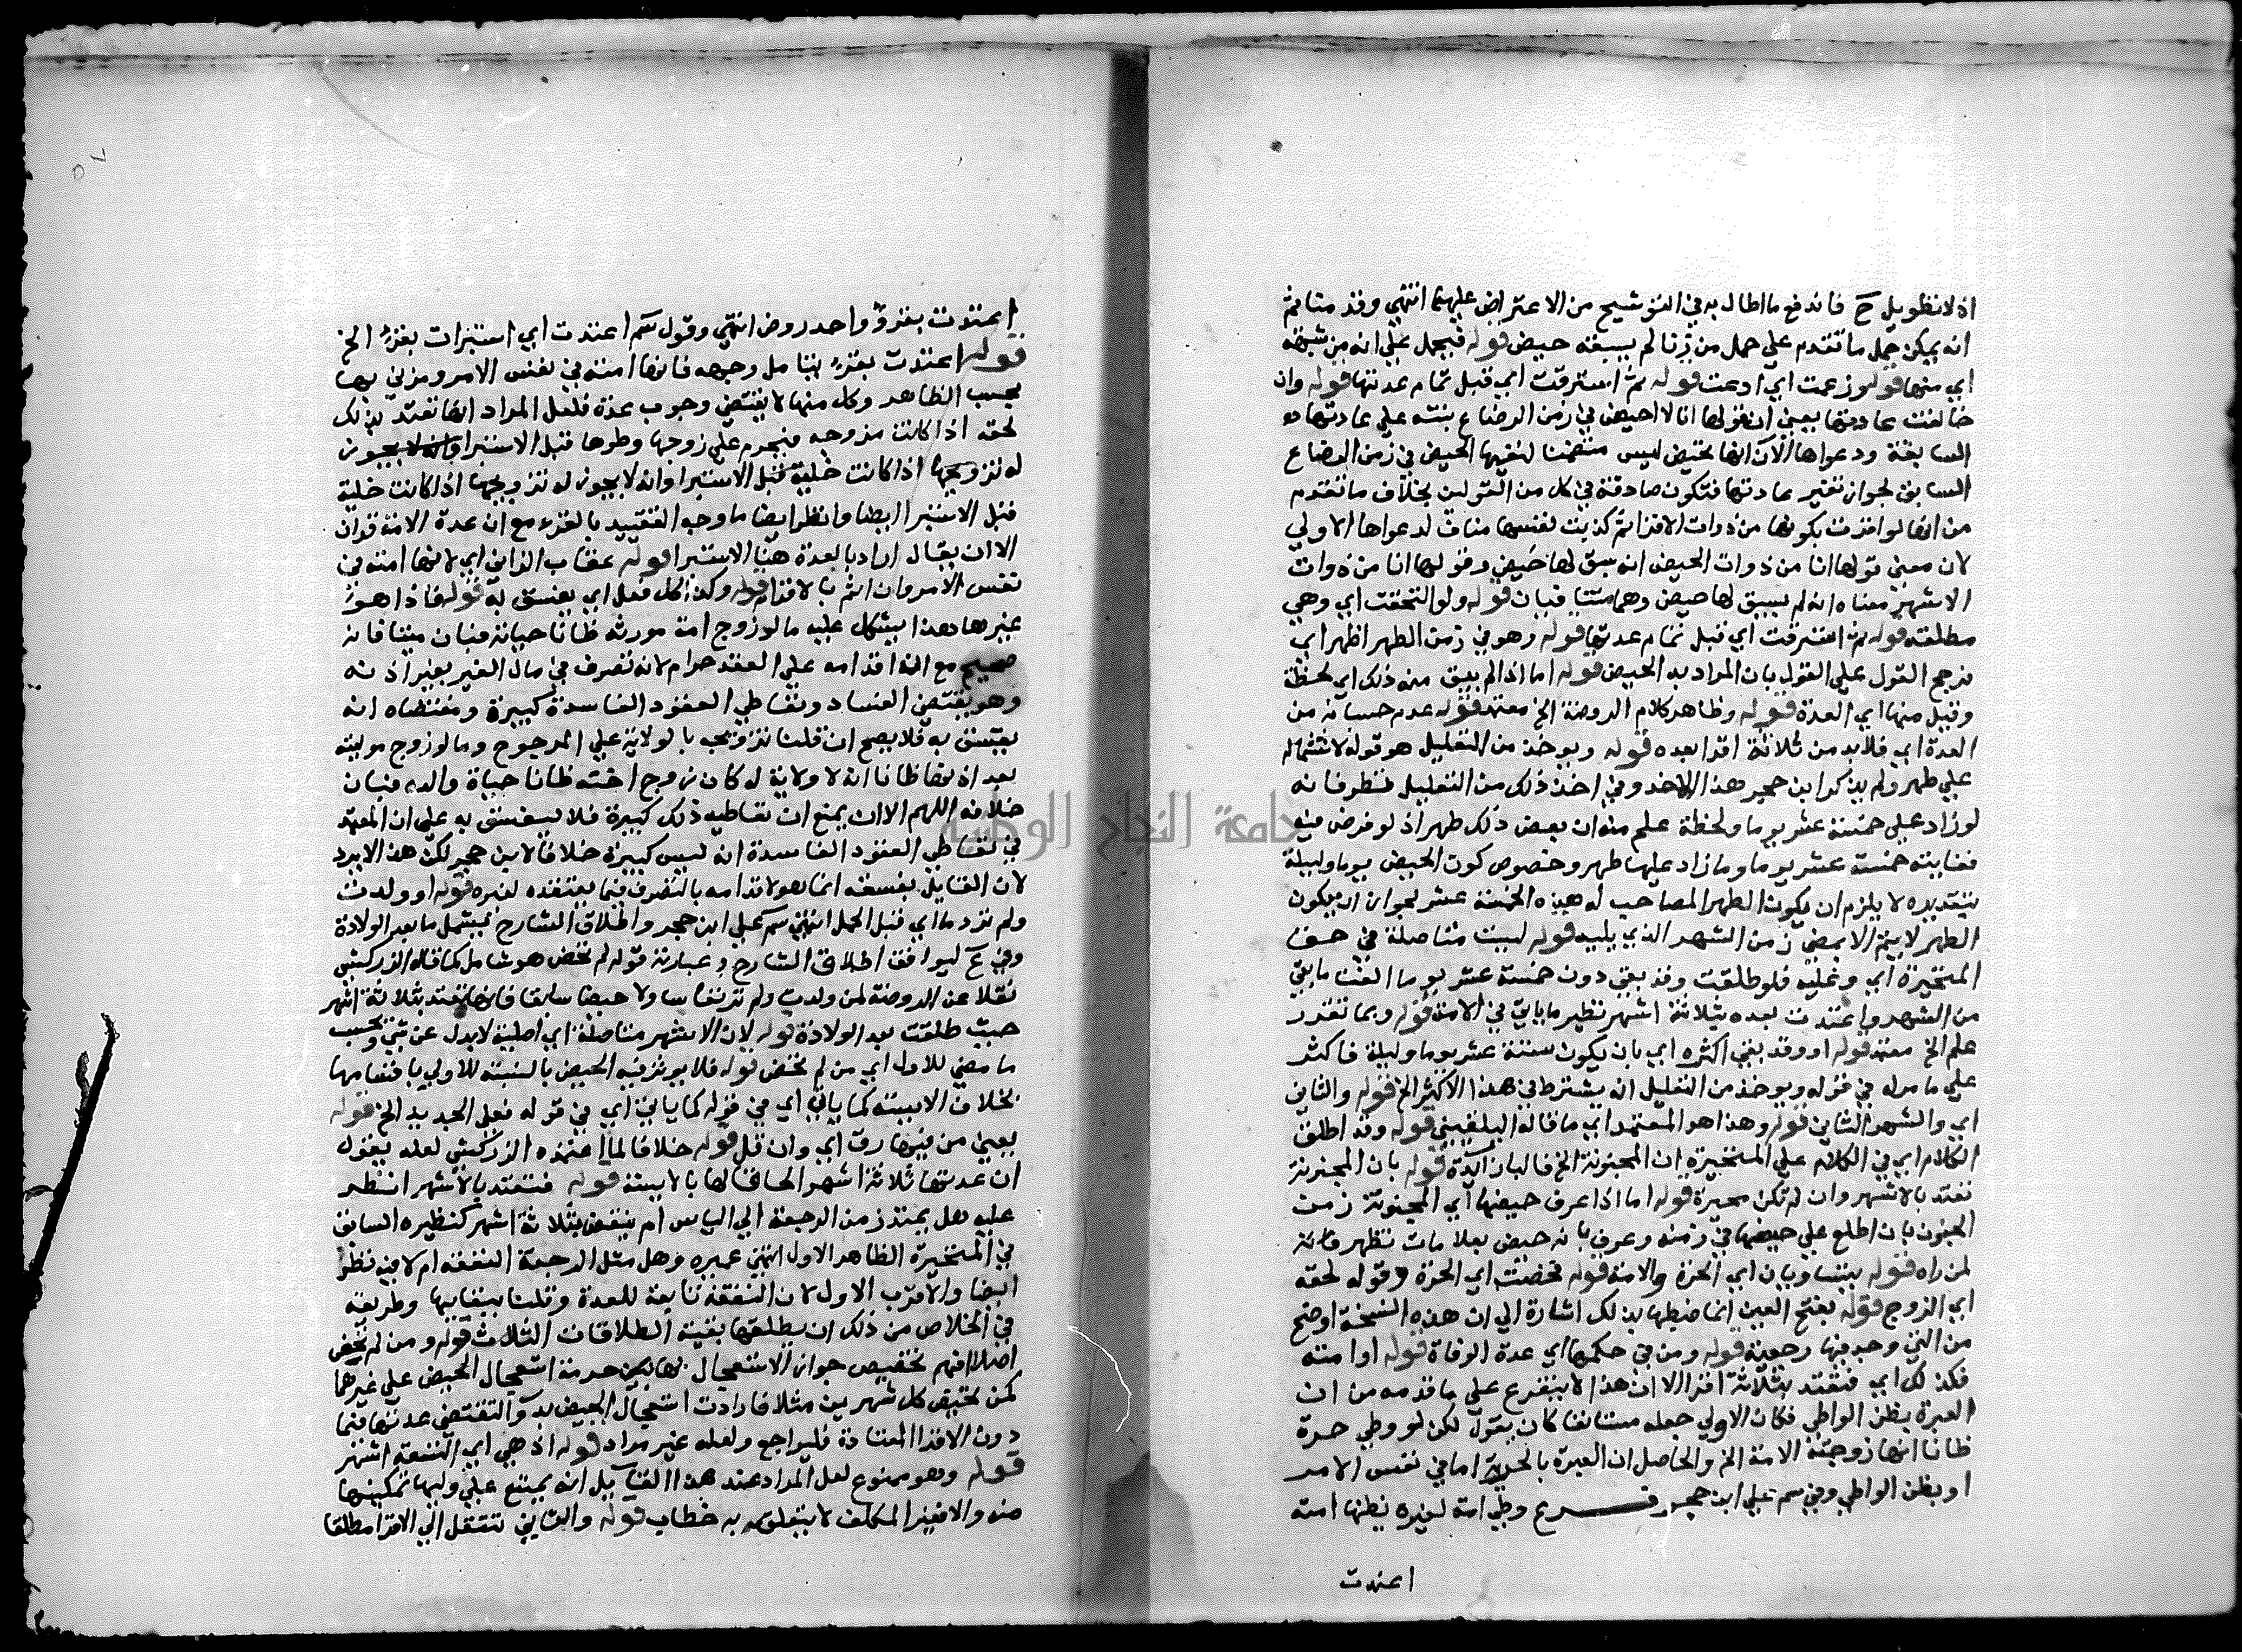 اذ لا تطويل ح فاندفع ما اطال به في التوشيح من الاعتراض عليهما انتهى وقد مثانم
انه يمكن حمل ما تقدم على حمل من زنا لم يسبقه حيض قوله فيحمل على انه من شبهة
اي منها قوله وزعمت اي ادعت قوله ثم استرقت اي قبل تمام عدتها قوله وان
خالفت عادتها بمعنى ان قولها انا لا احيض في زمن الرضاع بنته على عادتها
السابقة ودعواها الآن انها تحيض ليس متضمنا لنفيها الحيض في زمن الرضاع
السابق لجواز تغير عادتها فتكون صادقة في كل من القولين بخلاف ما تقدم
من انها لو اقرت بكونها من ذوات الاقرا ثم كذبت نفسها مناف لدعواها الاولى
لان معنى قولها انا من ذوات الحيض انه سبق لها حيض وقولها انا من ذوات
الاشهر معناه انه لم يسبق لها حيض وهما متنافيان قوله ولو التحقت اي وهي
مطلقة قوله ثم استرقت اي قبل تمام عدتها قوله وهو في زمن الطهر اظهر اي
نرجح القول على القول بان المراد به الحيض قوله اما اذا لم يبق منه ذلك اي لحظة
وقبل منها اي العدة قوله وظاهر كلام الروضة الخ معتمد قوله عدم حسبانه من
العدة اي فلا بد من ثلاثة اقرا بعده قوله ويوخذ من التعليل هو قوله لاشتماله
على طهر ولم يذكر ابن حجر هذا الاخذ وفي اخذ ذلك من التعليل نظر فانه
لو زاد على خمسة عشر يوما ولحظة علم منه ان بعض ذلك طهر اذ لو فرض فيه
فغايته خمسة عشر يوما وما زاد عليها طهر وخصوص كون الحيض يوما وليلة
بتقديره لا يلزم ان يكون الطهر المصاحب له هذه الخمسة عشر لجواز ان يكون
الطهر لا يتم الا بمضي زمن الشهر الذي يليه قوله ليست متاصلة في حق
المتحيرة اي وعليه فلو طلقت وقد بقي دون خمسة عشر يوما الغت ما بقي
من الشهر واعتدت بعده بثلاثة اشهر نظير ما ياتي في الامة قوله وبما تقرر
علم الخ معتمد قوله او وقد بقي اكثره اي بان يكون ستة عشر يوما وليلة فاكثر
على ما مر له في قوله ويوخذ من التعليل انه يشترط في هذا الاكثر الخ قوله والثاني
اي والشهر الثاني قوله وهذا هو المعتمد اي ما قاله البلقيني قوله وقد اطلق
الكلام اي في الكلام على المتحيرة ان المجنونة الخ قوله بان المجنونة
تعتد بالاشهر وان لم تكن متحيرة قوله اما اذا عرف حيضها اي المجنونة زمن
الجنون بان اطلع على حيضها في زمنه وعرف بانه حيض بعلامات تظهر
لمن راه قوله يستاويان اي الحرة والامة قوله تحضت اي الحرة وقوله لحقه
اي الزوج قوله بفتح العين انما ضبطها بذلك اشارة الى ان هذه النسخة اوضح
من التي وجد فيها رجعية قوله ومن في حكمها اي عدة الوفاة قوله او امته
فكذلك اي فتعتد بثلاثة اقرا الا ان هذا لا يتفرع على ما قدمه من ان
العبرة بظن الواطي فكان الاولى جعله مستانفا كان يقول لكن لو وطي حرة
ظانا انها زوجته الامة الخ والحاصل ان العبرة بالحرية اما في نفس الامر
او بظن الواطي وفي سم على ابن حجر فرع وطي امة لغيره يظنها امته
اعتدت
اعتدت بقرؤ واحد روض انتهى وقول سم اعتدت اي استبرات بقرء الخ
قوله اعتدت بقرء يتامل وجهه فانها امته في نفس الامر ومزني بها
بحسب الظاهر وكل منهما لا يقتضي وجوب عدة فلعل المراد انها تعتد بذلك
لحقه اذا كانت مزوجه فيحرم على زوجها وطوها قبل الاستبرا وانه لا يجوز
له تزويجها اذا كانت خلية قبل الاستبرا وانه لا يجوز له تزويجها اذا كانت خلية
قبل الاستبرا ايضا وانظر ايضا ما وجه التقييد بالقرء مع ان عدة الامة قران
الا ان يقال اراد بالعدة هنا الاستبرا قوله عقاب الزاني اي لانها امته في
نفس الامر وان اثم بالاقدام قوله وكذا كل فعل اي يفسق به قوله فاذا هو
غيرها وهذا يشكل عليه ما لو زوج امة مورثه ظانا حياته فبان ميتا فانه
صحيح مع ان اقدامه على العقد حرام لانه تصرف في مال الغير بغير اذنه
وهو يقتضي الفساد وتعاطي العقود الفاسدة كبيرة ومقتضاه انه
يفسق به فلا يصح ان قلنا تزويجه بالولاية على المرجوح وما لو زوج موليته
بعد اذنها ظانا انه لا ولاية له كان زوج اخته ظانا حياة والده فبان
خلافه اللهم الا ان يمنع ان تعاطيه ذلك كبيرة فلا يفسق به على ان المعتمد
في تعاطي العقود الفاسدة انه ليس كبيرة خلافا لابن حجر لكن هذا لا يرد
لان القايل بفسقه انما هو لاقدامه بالتصرف فيما يعتقده لغيره قوله او ولدت
ولم تر دما اي قبل الحمل انتهى سم على ابن حجر واطلاق الشارح يشمل ما بعد الولادة
وفي ع ليوافق اطلاق الشارح وعبارته قوله لم تحض هو شامل كما قاله الزركشي
نقلا عن الروضة لمن ولدت ولم تر نفاسا ولا حيضا سابقا فانها تعتد بثلاثة اشهر
حيث طلقت بعد الولادة قوله لان الاشهر متاصلة اي اصلية لا بدل عن شي وتحسب
ما مضى للاول اي من لم تحض قوله فلا يوثر فيه الحيض بالنسبة للاولى بانقضامها
بخلاف الايسة كما ياتي اي في قوله كما ياتي اي في قوله فعلى الجديد الخ قوله
يعني من فيها رق اي وان قل قوله خلافا لما اعتمده الزركشي لعله يقول
ان عدتها ثلاثة اشهر الحاقا لها بالايسة قوله فتعتد بالاشهر انظر
عليه هل يمتد زمن الرجعة الى الياس ام ينقضي بثلاثة اشهر كنظيره السابق
في المتحيرة الظاهر الاول انتهى عميره وهل مثل الرجعة النفقة ام لا فيه نظر
ايضا والاقرب الاول لان النفقة تابعة للعدة وقلنا ببقايها وطريقه
في الخلاص من ذلك ان يطلقها بقية الطلاقات الثلاث قوله ومن لم تحض
اصلا افهم تخصيص جواز الاستعجال بها يكن حرمة استعجال الحيض على غيرهما
كمن تحيض كل شهرين مثلا فارادت استعجال الحيض بدوا لتنقضي عدتها فيما
دون الاقرا المعتادة فليراجع ولعله غير مراد قوله اذ هي اي التسعة اشهر
قوله وهو ممنوع لعل المراد عند هذا القايل انه يمتنع على وليها تمكينها
منه والا فغير المكلف لا يتعلق به خطاب قوله والثاني تنتقل الى الاقرا مطلقا